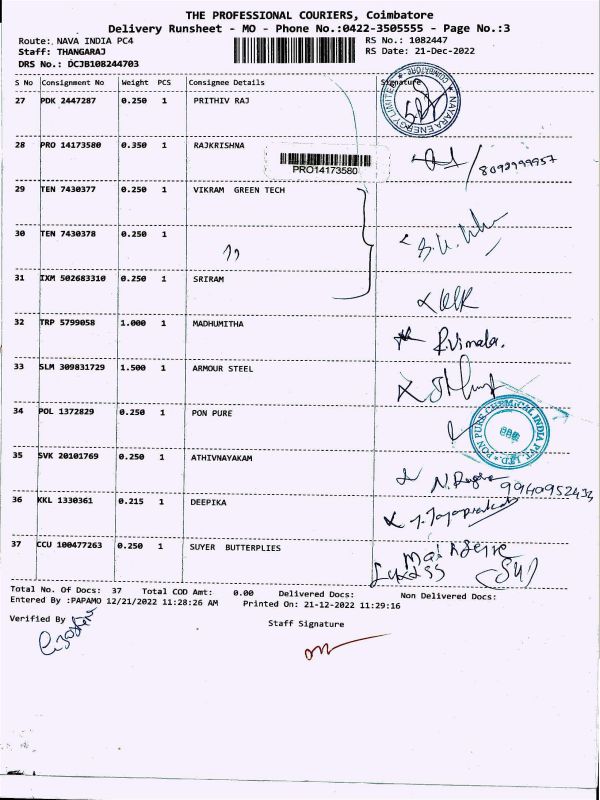 THE PROFESSIONAL COURIERS, Coimbatore
Delivery Runsheet - MO - Phone No.:0422-3505555 - Page No.:3
Route: NAVA INDIA PC4 RS No.: 1082447
Staff: THANGARAJ RS Date: 21-Dec-2022
DRS No.: DCJB108244703
S No Consignment No Weight PCS Consignee Details Signature
27 PDK 2447287 0.250 1 PRITHIV RAJ
NAYARA ENERGY LIMITED COIMBATORE
28 PRO 14173580 0.350 1 RAJKRISHNA
PRO14173580
29 TEN 7430377 0.250 1 VIKRAM GREEN TECH
30 TEN 7430378 0.250 1 "
31 IXM 502683310 0.250 1 SRIRAM
32 TRP 5799058 1.000 1 MADHUMITHA R.Vimala.
33 SLM 309831729 1.500 1 ARMOUR STEEL
34 POL 1372829 0.250 1 PON PURE
PON PURE CHEMICAL INDIA PVT. LTD.
35 SVK 20101769 0.250 1 ATHIVNAYAKAM
9940952433
36 KKL 1330361 0.215 1 DEEPIKA
37 CCU 100477263 0.250 1 SUYER BUTTERPLIES
Total No. Of Docs: 37 Total COD Amt: 0.00 Delivered Docs: Non Delivered Docs:
Entered By :PAPAMO 12/21/2022 11:28:26 AM Printed On: 21-12-2022 11:29:16
Verified By
Staff Signature